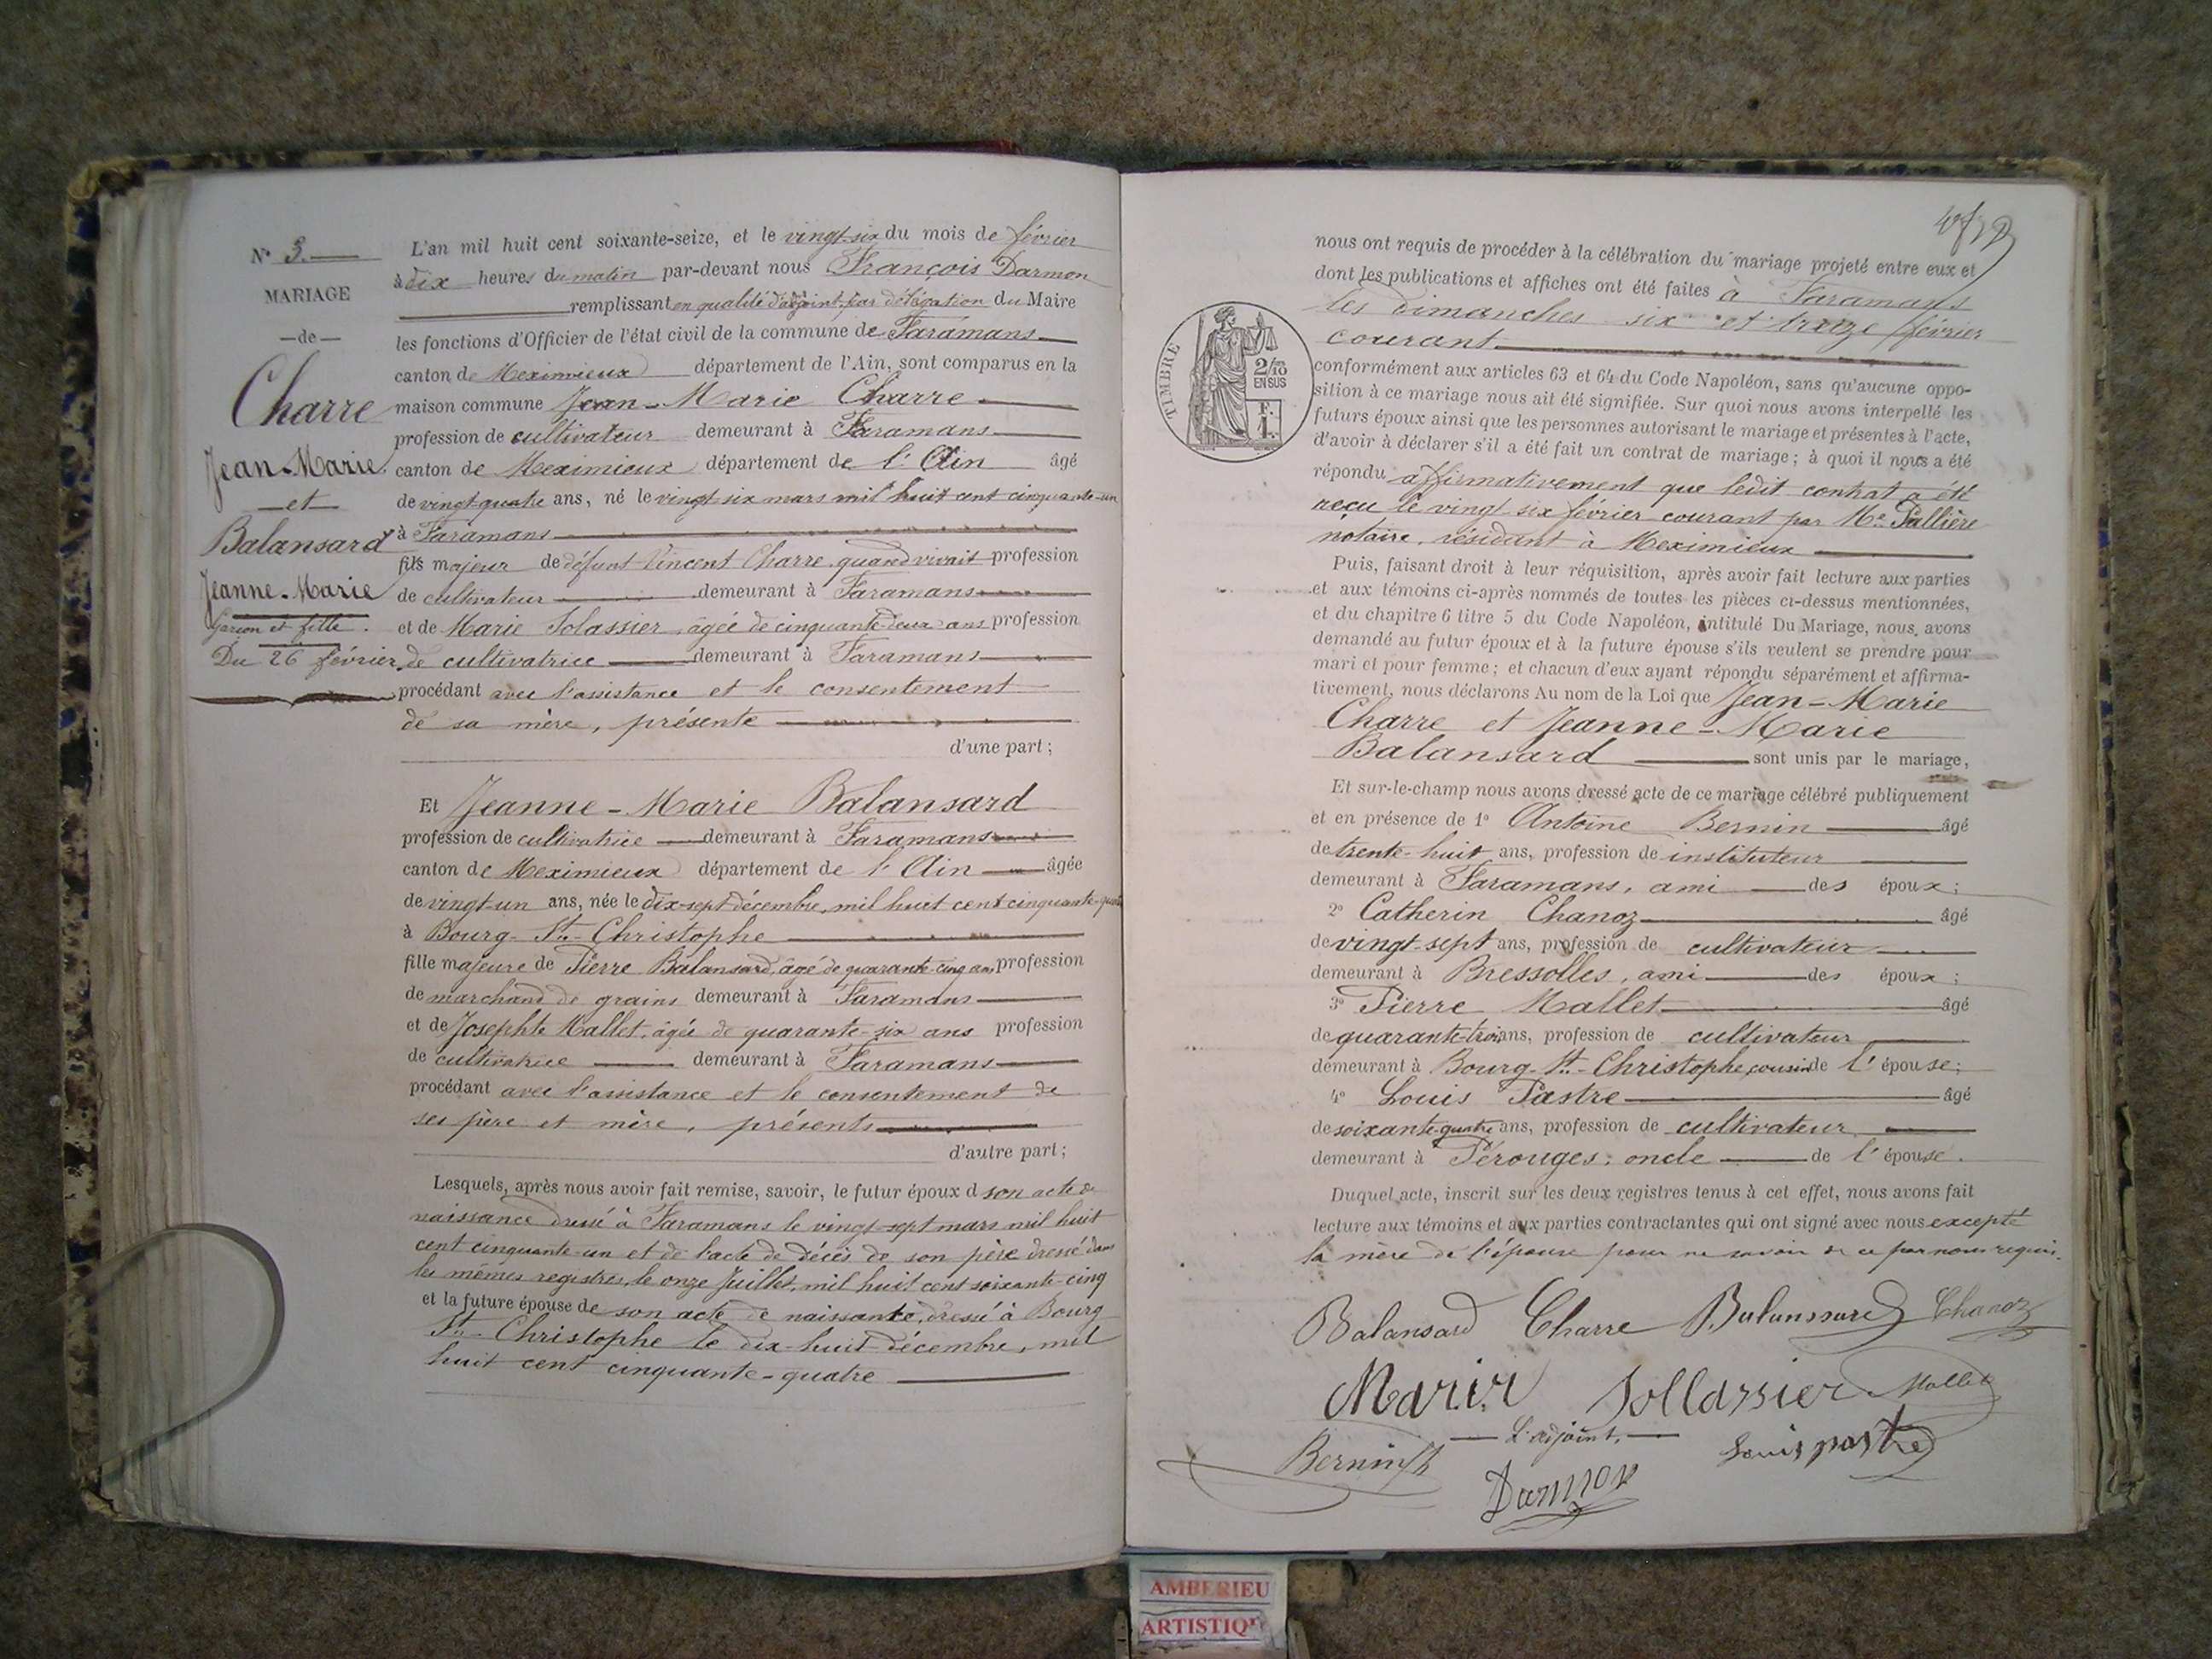 N° 3.
MARIAGE
—de—
Charre
Jean-Marie
—et—
Balansard
Jeanne-Marie
Garçon et fille.
Du 26 février
L'an mil huit cent soixante-seize, et le vingt-six du mois de février
à dix heures du matin par-devant nous François Darmon
remplissant en qualité d'adjoint, par délégation du Maire
les fonctions d'Officier de l'état civil de la commune de Faramans
canton de Meximieux département de l'Ain, sont comparus en la
maison commune Jean-Marie Charre
profession de cultivateur demeurant à Faramans
canton de Meximieux département de l'Ain âgé
de vingt-quatre ans, né le vingt-six mars mil huit cent cinquante-un
à Faramans
fils majeur de défunt Vincent Charre, quand vivait profession
de cultivateur demeurant à Faramans
et de Marie Solassier, âgée de cinquante-deux ans profession
de cultivatrice demeurant à Faramans
procédant avec l'assistance et le consentement
de sa mère, présente
d'une part;
Et Jeanne-Marie Balansard
profession de cultivatrice demeurant à Faramans
canton de Meximieux département de l'Ain âgée
de vingt-un ans, née le dix-sept décembre, mil huit cent cinquante-quatre
à Bourg-St-Christophe
fille majeure de Pierre Balansard, âgé de quarante-cinq ans profession
de marchand de grains demeurant à Faramans
et de Josephte Mallet, âgée de quarante-six ans profession
de cultivatrice demeurant à Faramans
procédant avec l'assistance et le consentement de
ses père et mère, présents
d'autre part;
Lesquels, après nous avoir fait remise, savoir, le futur époux d son acte de
naissance dressé à Faramans le vingt-sept mars mil huit
cent cinquante-un et de l'acte de décès de son père dressé dans
les mêmes registres, le onze Juillet, mil huit cent soixante-cinq
et la future épouse de son acte de naissance, dressé à Bourg
St-Christophe le dix-huit décembre, mil
huit cent cinquante-quatre
nous ont requis de procéder à la célébration du mariage projeté entre eux et
dont les publications et affiches ont été faites à Faramans
les dimanches six et treize février
courant
TIMBRE
2/10
EN SUS
F.
1.
conformément aux articles 63 et 64 du Code Napoléon, sans qu'aucune oppo-
sition à ce mariage nous ait été signifiée. Sur quoi nous avons interpellé les
futurs époux ainsi que les personnes autorisant le mariage et présentes à l'acte,
d'avoir à déclarer s'il a été fait un contrat de mariage; à quoi il nous a été
répondu affirmativement que ledit contrat a été
reçu le vingt six février courant par Me Pallière
notaire, résidant à Meximieux
Puis, faisant droit à leur réquisition, après avoir fait lecture aux parties
et aux témoins ci-après nommés de toutes les pièces ci-dessus mentionnées,
et du chapitre 6 titre 5 du Code Napoléon, intitulé Du Mariage, nous avons
demandé au futur époux et à la future épouse s'ils veulent se prendre pour
mari et pour femme; et chacun d'eux ayant répondu séparément et affirma-
tivement, nous déclarons Au nom de la Loi que Jean-Marie
Charre et Jeanne-Marie
Balansard sont unis par le mariage,
Et sur-le-champ nous avons dressé acte de ce mariage célébré publiquement
et en présence de 1° Antoine Bernin âgé
de trente-huit ans, profession de instituteur
demeurant à Faramans, ami des époux;
2° Catherin Chanoz âgé
de vingt-sept ans, profession de cultivateur
demeurant à Bressolles, ami des époux;
3° Pierre Mallet âgé
de quarante-trois ans, profession de cultivateur
demeurant à Bourg-St-Christophe, cousin de l'épouse;
4° Louis Pastre âgé
de soixante-quatre ans, profession de cultivateur
demeurant à Pérouges; oncle de l'épouse.
Duquel acte, inscrit sur les deux registres tenus à cet effet, nous avons fait
lecture aux témoins et aux parties contractantes qui ont signé avec nous excepté
la mère de l'épouse pour ne savoir de ce par nous requis.
Balansard Charre Balanssard Chanoz
Marie Sollassier Mallet
Bernin L'adjoint, Louis pastre
Darmon
AMBERIEU
ARTISTIQ